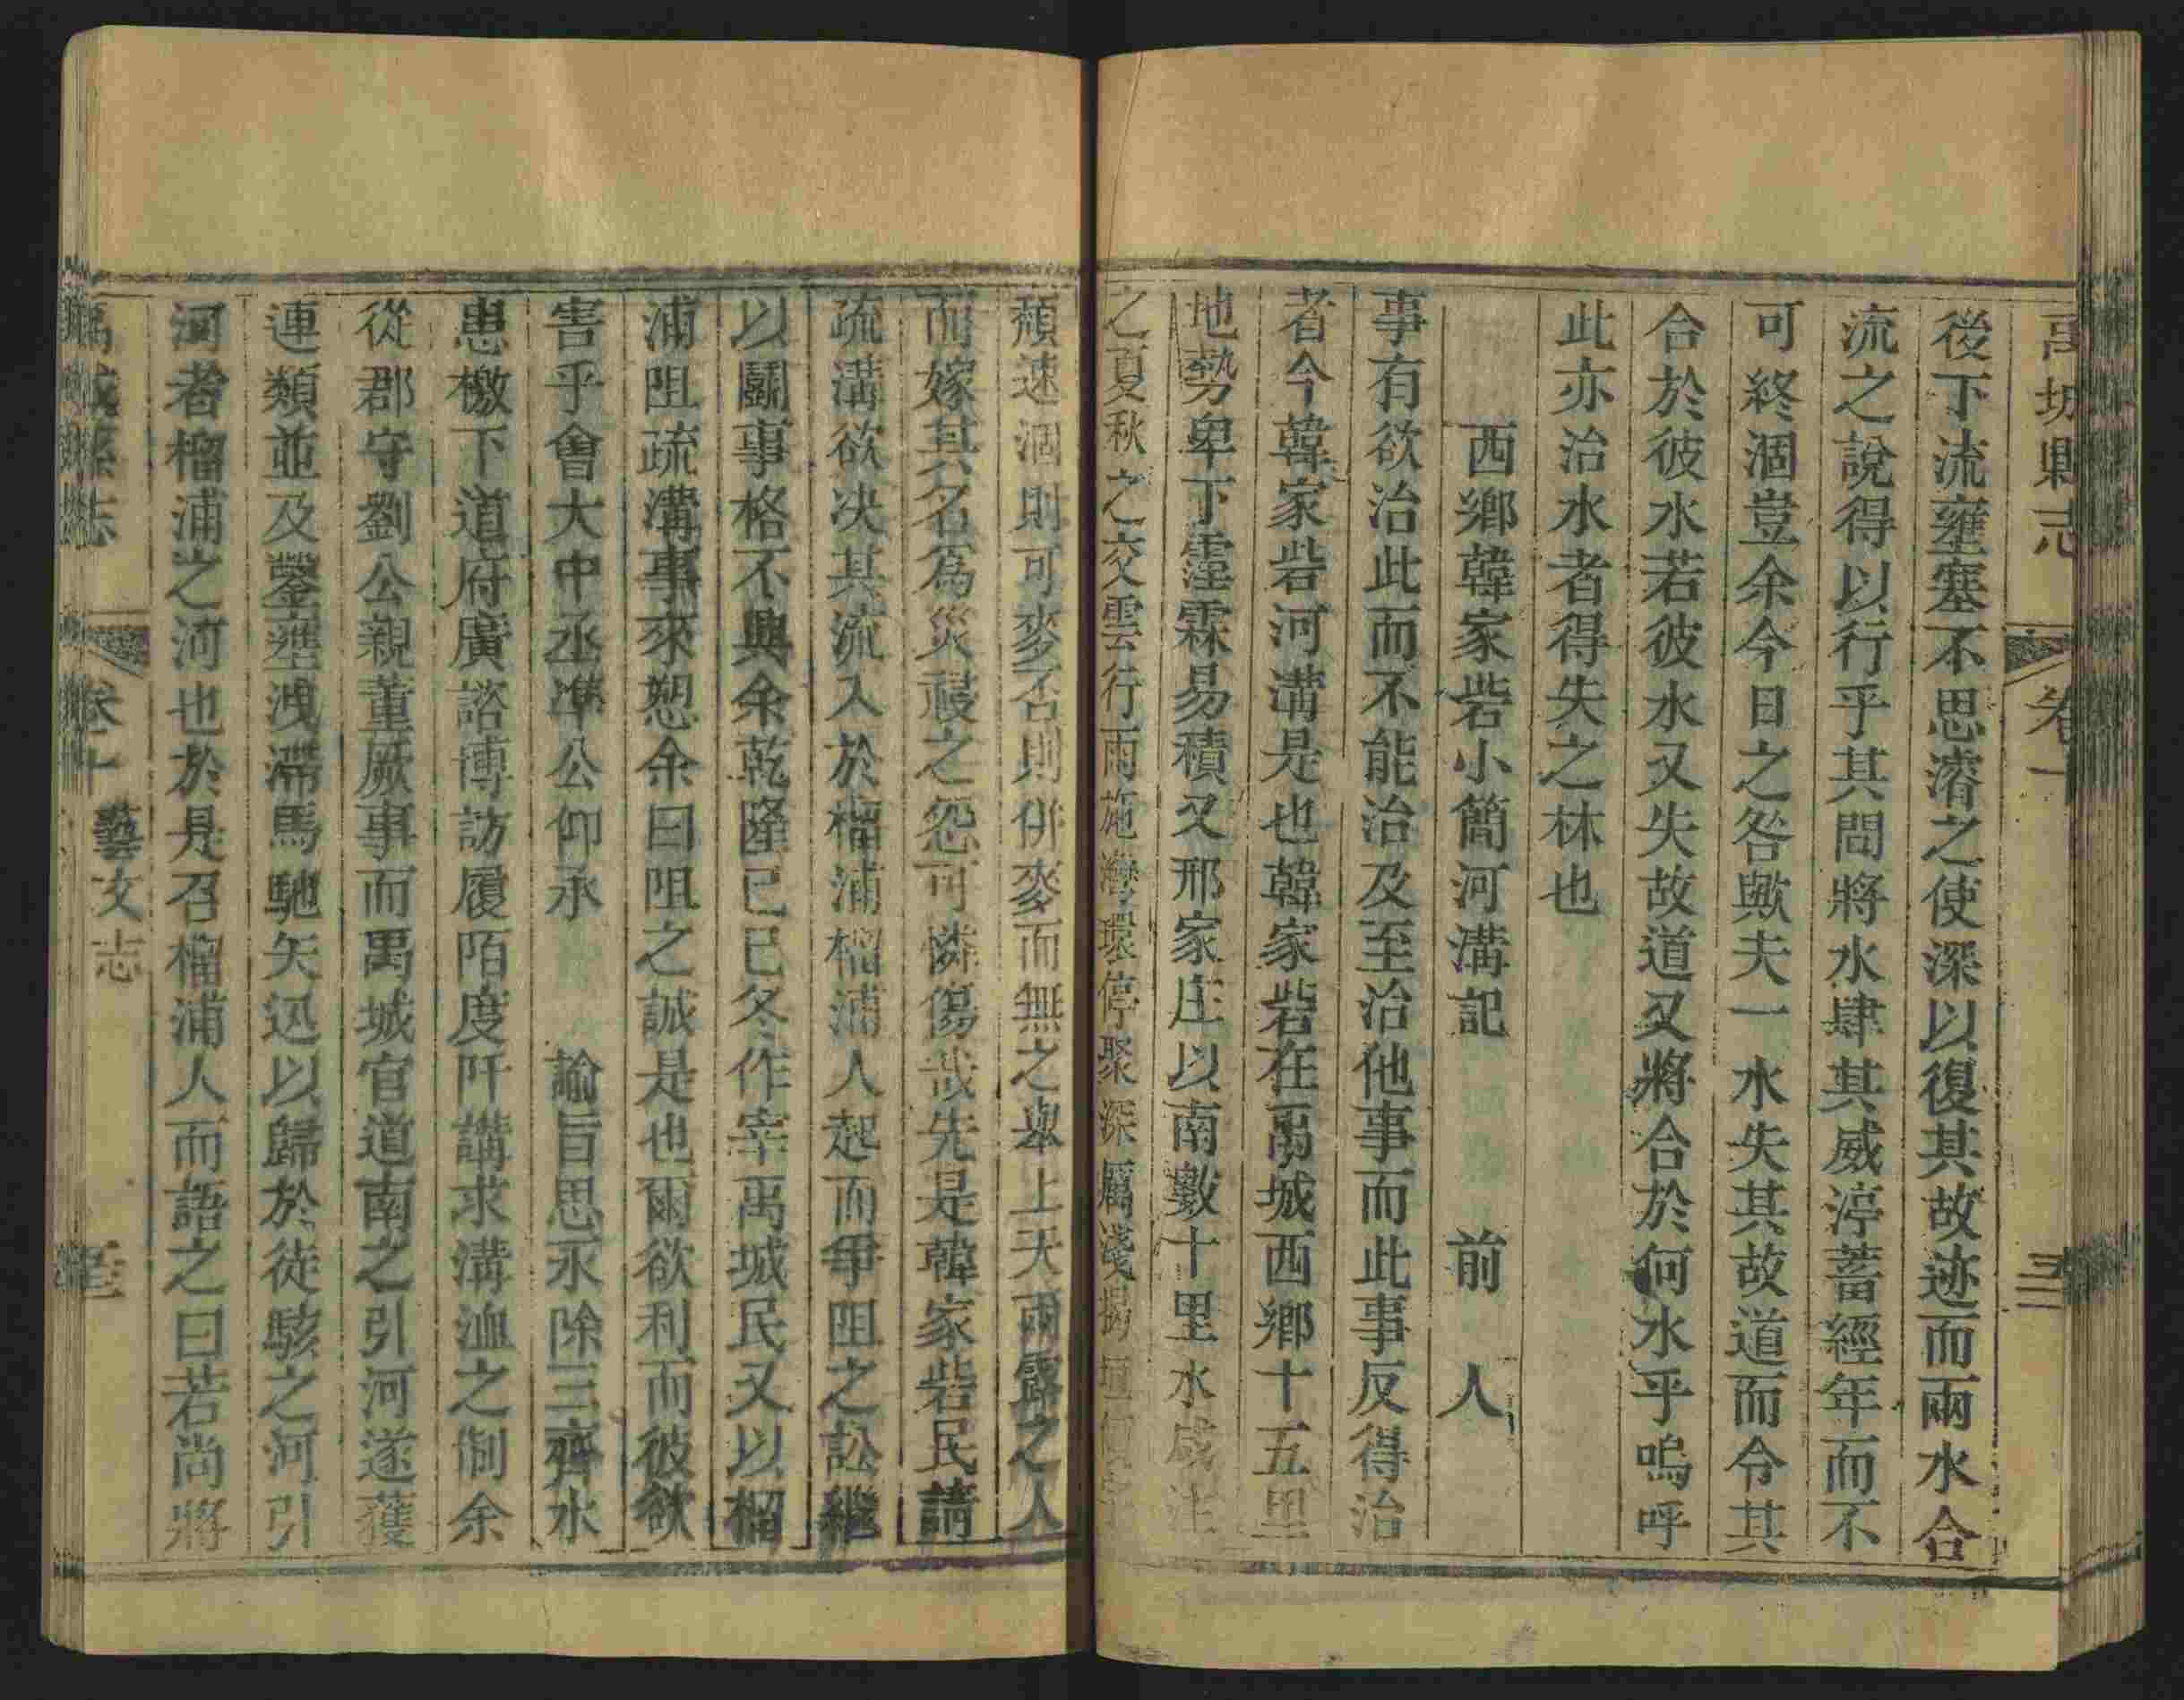 禹城縣志 卷十
後下流壅塞不思濬之使深以復其故迹而兩水合
流之說得以行乎其間將水肆其威渟蓄經年而不
可終涸豈余今日之咎歟夫一水失其故道而令其
合於彼水若彼水又失故道又將合於何水乎嗚呼
此亦治水者得失之林也
西鄉韓家砦小簡河溝記 前人
事有欲治此而不能治及至治他事而此事反得治
者今韓家砦河溝是也韓家砦在禹城西鄉十五里
地勢卑下霪霖易積又邢家庄以南數十里水咸注
之夏秋之交雲行雨施灣環停聚深厲淺揭
頹速涸則可麥否則併麥而無之與上天雨露之人
而嫁其名爲災祲之怨可憐傷哉先是韓家砦民請
疏溝欲决其流入於榴浦榴浦人起而爭阻之訟繼
以鬭事格不興余乾隆己巳冬作宰禹城民又以榴
浦阻疏溝事來恕余曰阻之誠是也爾欲利而彼欲
害乎會大中丞凖公仰承 諭旨思永除三齊水
患檄下道府廣諮博訪履陌度阡講求溝洫之制余
從郡守劉公親董厥事而禹城官道南之引河遂獲
連類並及鑿壅洩滯馬馳矢迅以歸於徒駭之河引
河者榴浦之河也於是召榴浦人而語之曰若尚將
禹城縣志 卷十 藝文志